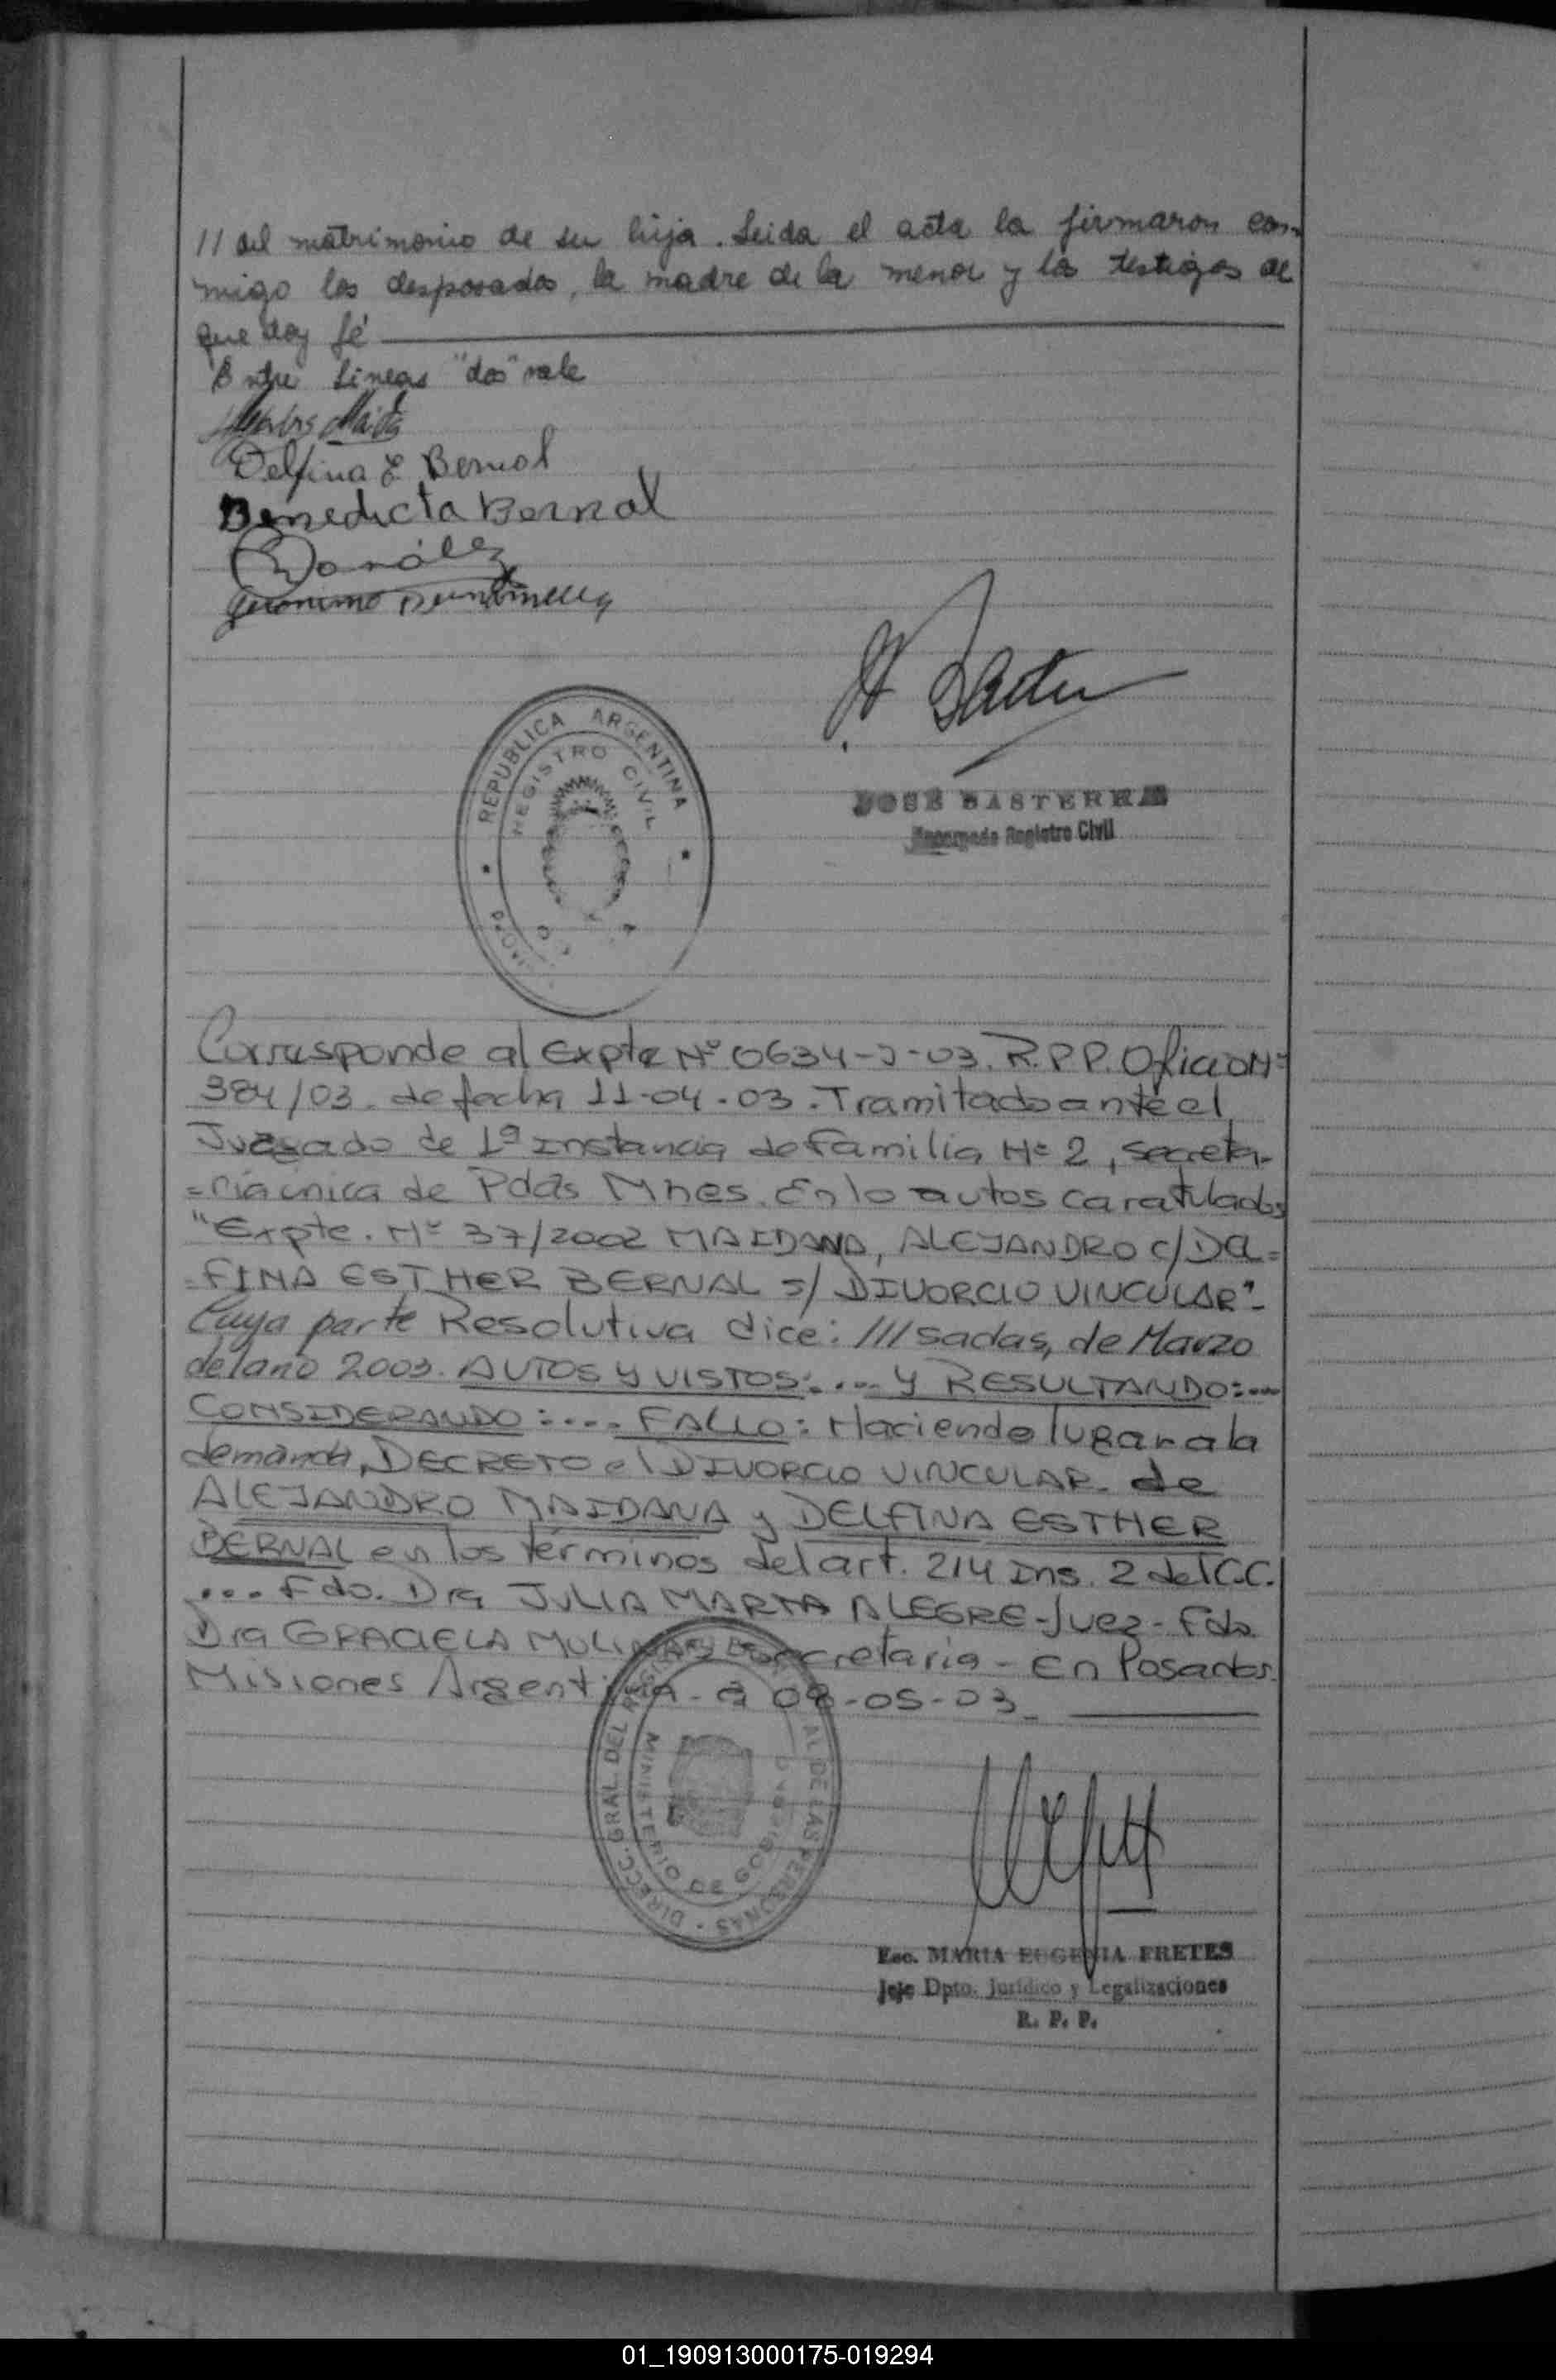 // del matrimonio de su hija. Leida el acta la firmaron con-
migo los desposados, la madre de la menor y los testigos de
que doy fé
Entre lineas "dos" vale
Delfina E Bernal
Benedicta Bernal
JOSÉ BASTERRA
Encargado Registro Civil
REPUBLICA ARGENTINA
REGISTRO CIVIL
Corresponde al Expte Nº 0634-J-03. R.P.P. Oficio Nº
384/03. de fecha 11-04-03. Tramitado ante el
Juzgado de 1ª Instancia de Familia Nº 2, secreta-
=ria unica de Pdas Mnes. En lo autos caratulados
"Expte. Nº 37/2002 MAIDANA, ALEJANDRO C/ DEL=
=FINA ESTHER BERNAL S/ DIVORCIO VINCULAR"-
Cuya parte Resolutiva dice: ///sadas, de Marzo
del año 2003. AUTOS Y VISTOS:.... Y RESULTANDO:....
CONSIDERANDO:.... FALLO: Haciendo lugar a la
demanda, DECRETO el DIVORCIO VINCULAR de
ALEJANDRO MAIDANA y DELFINA ESTHER
BERNAL en los términos del art. 214 Ins. 2 del C.C.
... Fdo. Dra JULIA MARTA ALEGRE-Juez- Fdo.
Dra GRACIELA Secretaria - En Posadas.
Misiones Argentina - a 08-05-03
DIRECC. GRAL DEL REGIST AL DE LAS PERSONAS
MINISTERIO DE GOBIERNO
Esc. MARIA EUGENIA FRETES
Jefe Dpto. Jurídico y Legalizaciones
R. P. P.
01_190913000175-019294